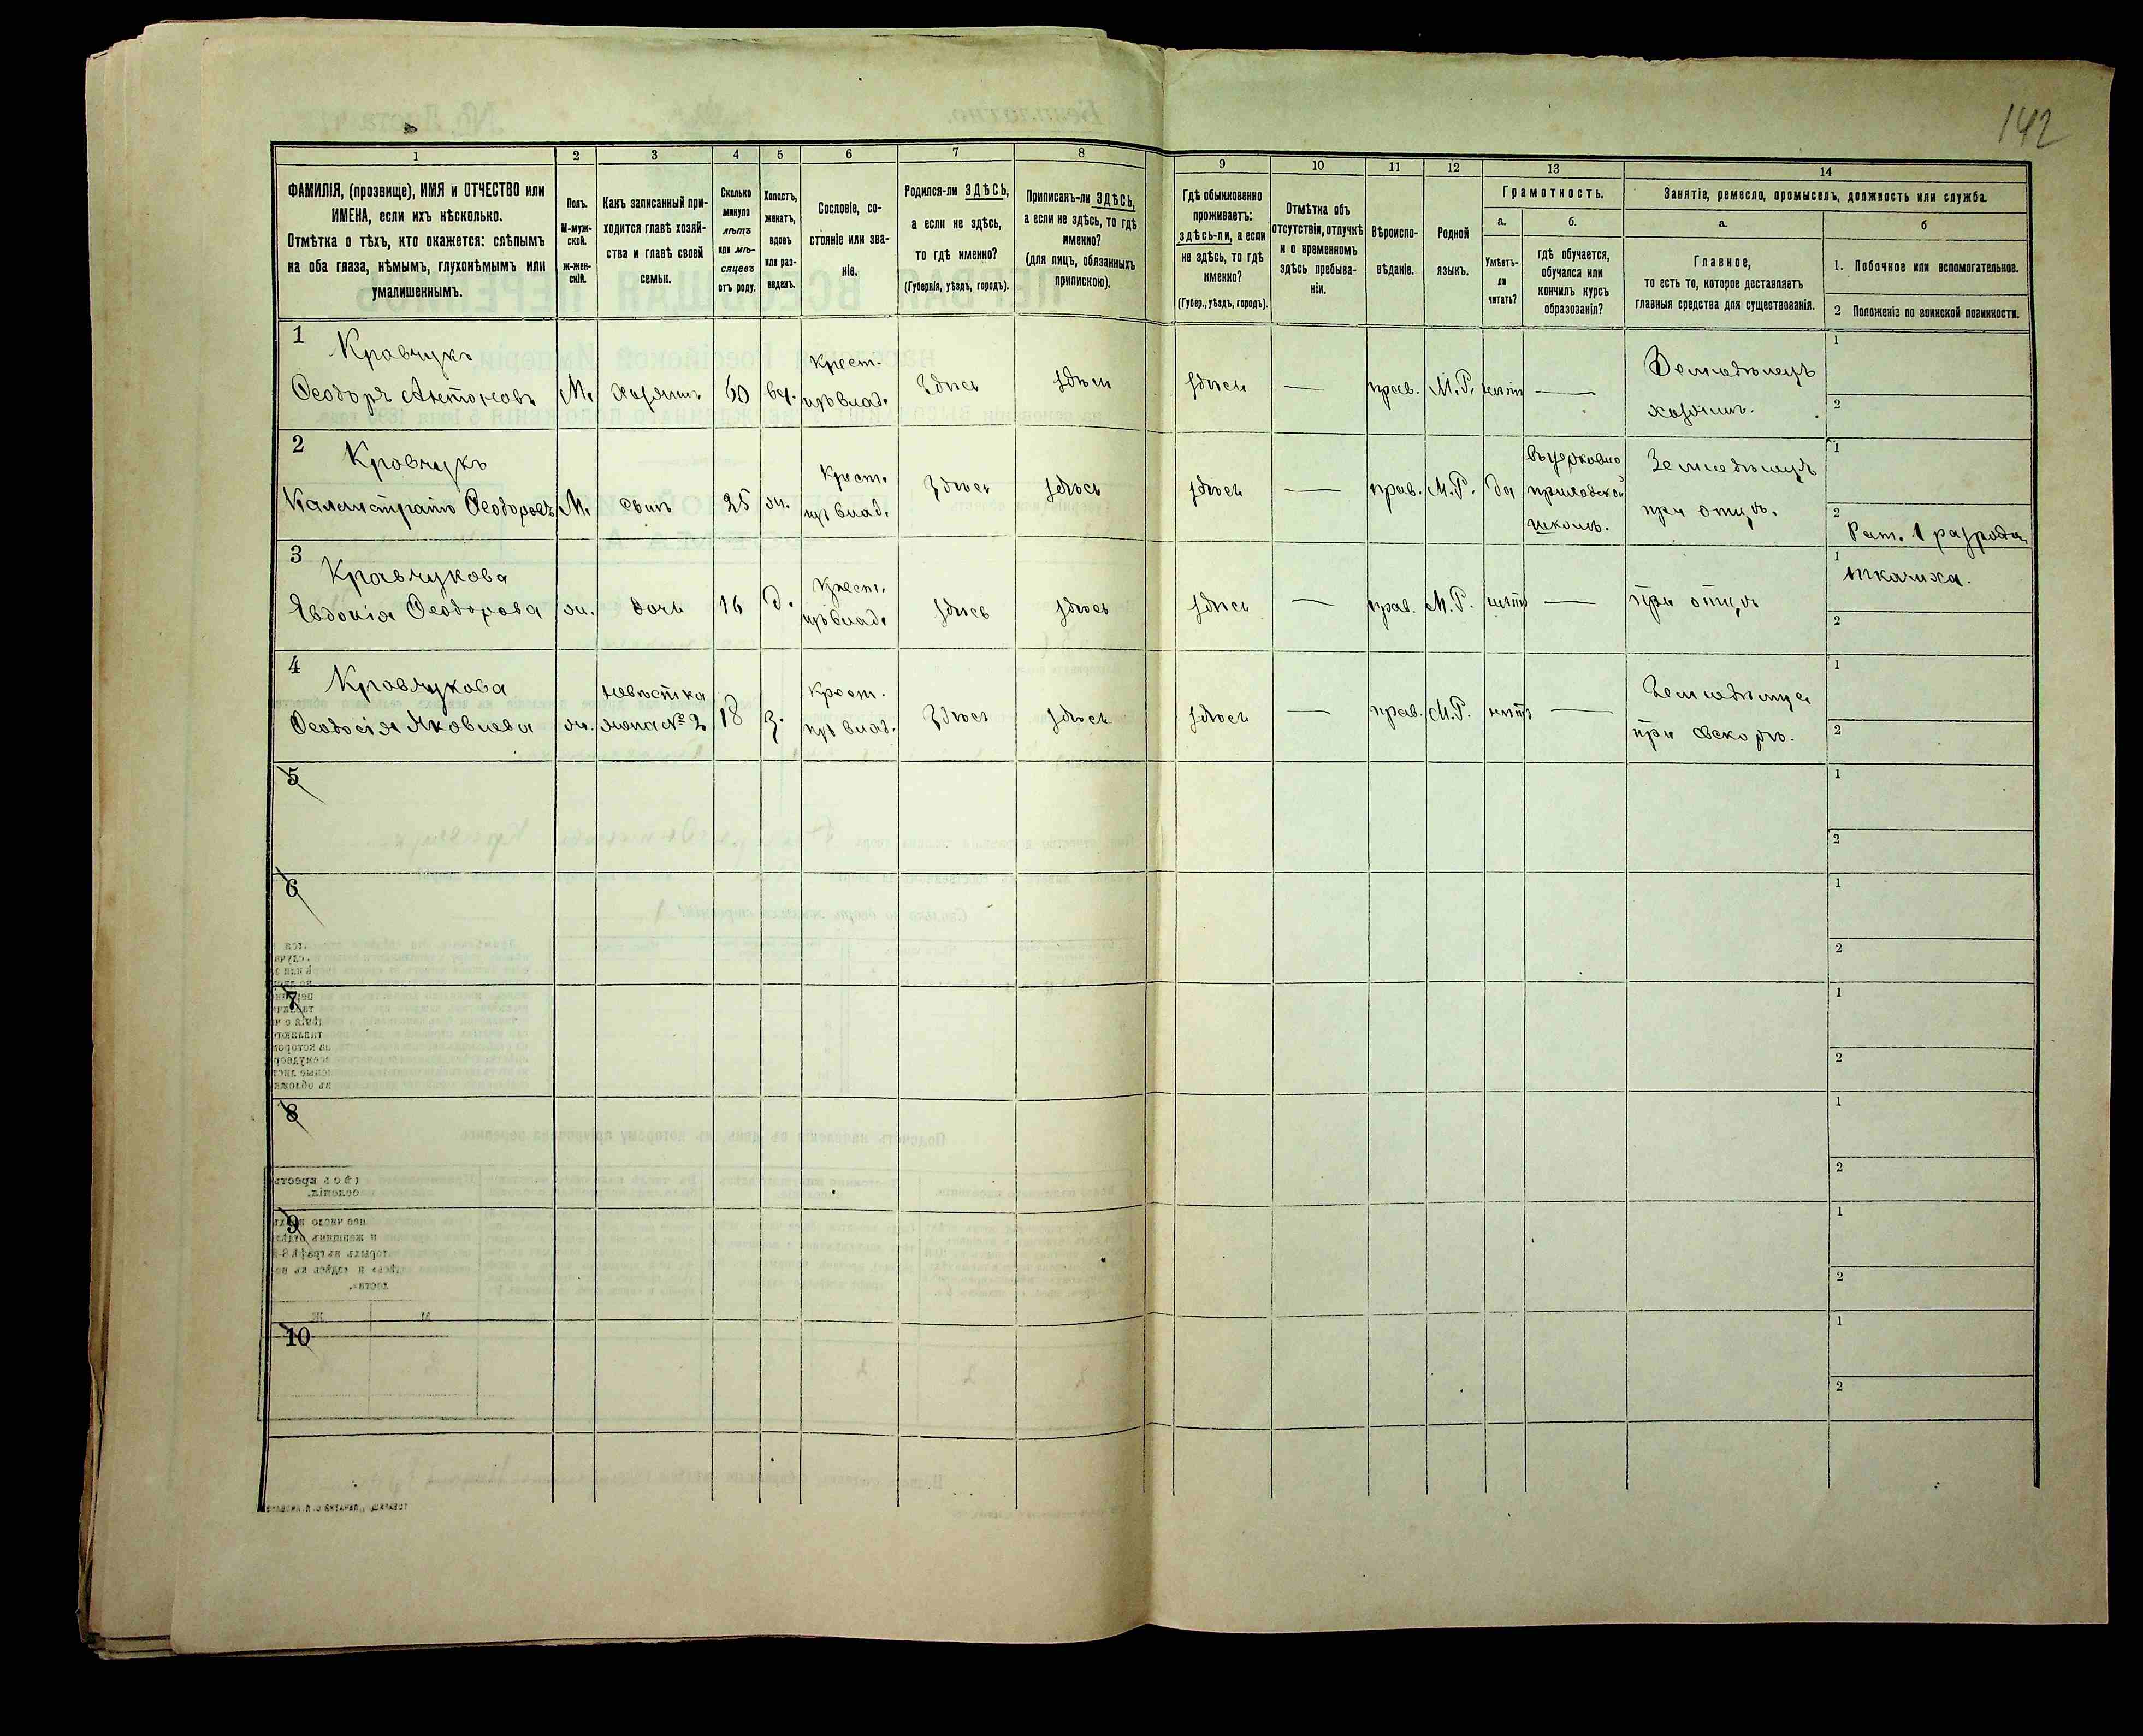 142
1 2 3 4 5 6 7 8 9 10 11 12 13 14
ФАМИЛІЯ, (прозвище), ИМЯ и ОТЧЕСТВО или
ИМЕНА, если ихъ нѣсколько.
Отмѣтка о тѣхъ, кто окажется: слѣпымъ
на оба глаза, нѣмымъ, глухонѣмымъ или
умалишеннымъ.
Полъ.
М-муж-
ской.
Ж-жен-
скій.
Какъ записанный при-
ходится главѣ хозяй-
ства и главѣ своей
семьи.
Сколько
минуло
лѣтъ
или мѣ-
сяцевъ
отъ роду.
Холостъ,
женатъ,
вдовъ
или раз-
веденъ.
Сословіе, со-
стояніе или зва-
ніе.
Родился-ли ЗДѢСЬ,
а если не здѣсь,
то гдѣ именно?
(Губернія, уѣздъ, городъ).
Приписанъ-ли ЗДѢСЬ,
а если не здѣсь, то гдѣ
именно?
(для лицъ, обязанныхъ
припискою).
Гдѣ обыкновенно
проживаетъ:
здѣсь-ли, а если
не здѣсь, то гдѣ
именно?
(Губер., уѣздъ, городъ).
Отмѣтка объ
отсутствіи, отлучкѣ
и о временномъ
здѣсь пребыва-
ніи.
Вѣроиспо-
вѣданіе.
Родной
языкъ.
Грамотность.
а.
Умѣетъ-
ли
читать?
б.
гдѣ обучается,
обучался или
кончилъ курсъ
образованія?
Занятіе, ремесло, промыселъ, должность или служба.
а.
Главное,
то есть то, которое доставляетъ
главныя средства для существованія.
б
1. Побочное или вспомогательное.
2 Положеніе по воинской повинности.
1
Кравчукъ
Ѳеодоръ Антоновъ
М.
хозяинъ
60
вд.
Крест.
изъ влад.
Здѣсь
здѣсь
здѣсь
—
прав.
М.Р.
нѣтъ
—
Земледѣлецъ
хозяинъ.
1
2
2
Кравчукъ
Калистратъ Ѳеодоровъ
М.
сынъ
25
ж.
Крест.
изъ влад.
Здѣсь
здѣсь
здѣсь
—
прав.
М.Р.
да
въ церковно
приходской
школѣ.
Земледѣлецъ
при отцѣ.
1
2
Рат. 1 разряда
3
Кравчукова
Евдокія Ѳеодорова
ж.
дочь
16
д.
Крест.
изъ влад.
здѣсь
здѣсь
здѣсь
—
прав.
М.Р.
нѣтъ
—
при отцѣ
1
ткачиха.
2
4
Кравчукова
Ѳеодосія Яковлева
ж.
невѣстка
жена № 2
18
з.
Крест.
изъ влад.
Здѣсь
здѣсь
здѣсь
—
прав.
М.Р.
нѣтъ
—
Земледѣлица
при свекорѣ.
1
2
5
1
2
6
1
2
7
1
2
8
1
2
9
1
2
10
1
2